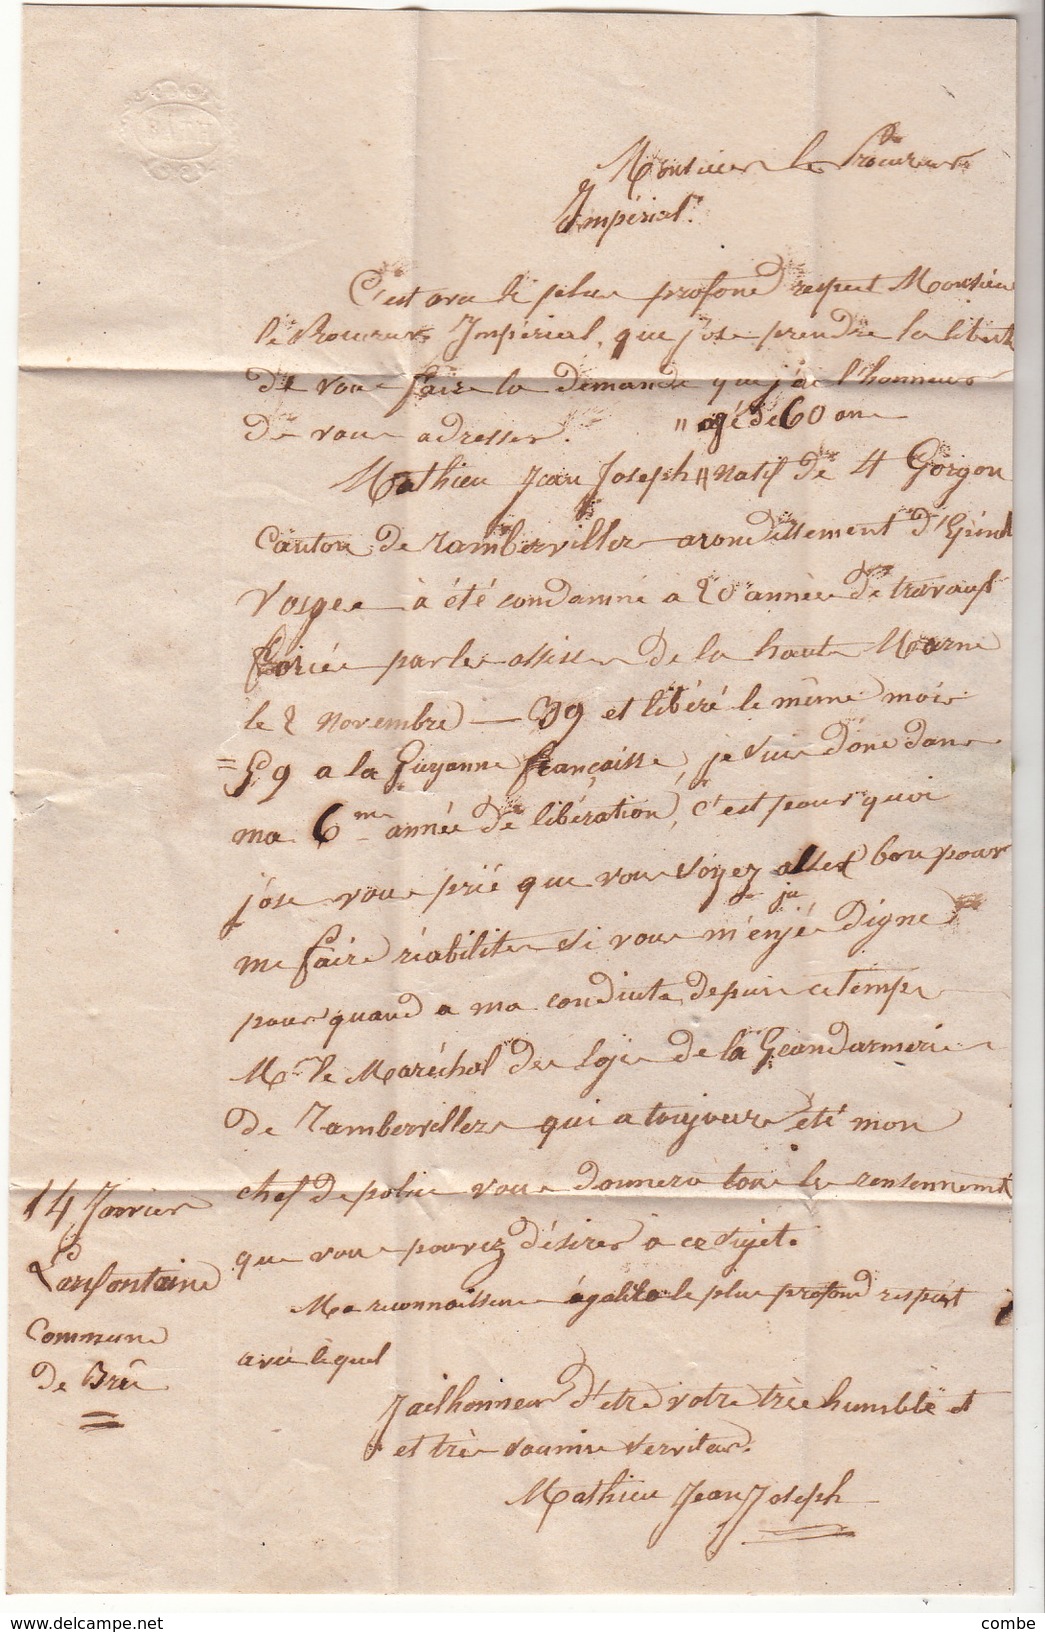 BATH
Monsieur le Procureur
Impérial.
C'est avec le plus profond respect Monsieur
le Procureur Impérial, que j'ose prendre la liberté
de vous faire la demande que j'ai l'honneur
de vous adresser. " agé de 60 ans
Mathieu Jean Joseph " natif de St Gorgon
Canton de rambervillers arondissement d'Epinal
Vosges à été condamné a 20 années de travaux
forcée par les assises de la haute Marne
le 2 novembre — 39 et libéré le même mois
= 59 a la Guyanne françaisse, je suis donc dans
ma 6me année de libération, c'est pour quoi
j'ose vous prié que vous soyez assez bon pour
me faire réabiliter si vous m'enjugée digne
pour quand a ma conduite depuis ce temps
Mr le Maréchal des logis de la Geandarmerie
de rambervillers qui a toujours été mon
chef de police vous donnera tous les rensennements
que vous pouvez désirer a ce sujet.
Ma reconnaissence égalera le plus profond respect
avec lequel
J'ai l'honneur d'etre votre très humble et
et très soumis serviteur.
Mathieu Jean Joseph
14 Janvier
Lanfontaine
Commune
de Brû
delcampe.net
combe